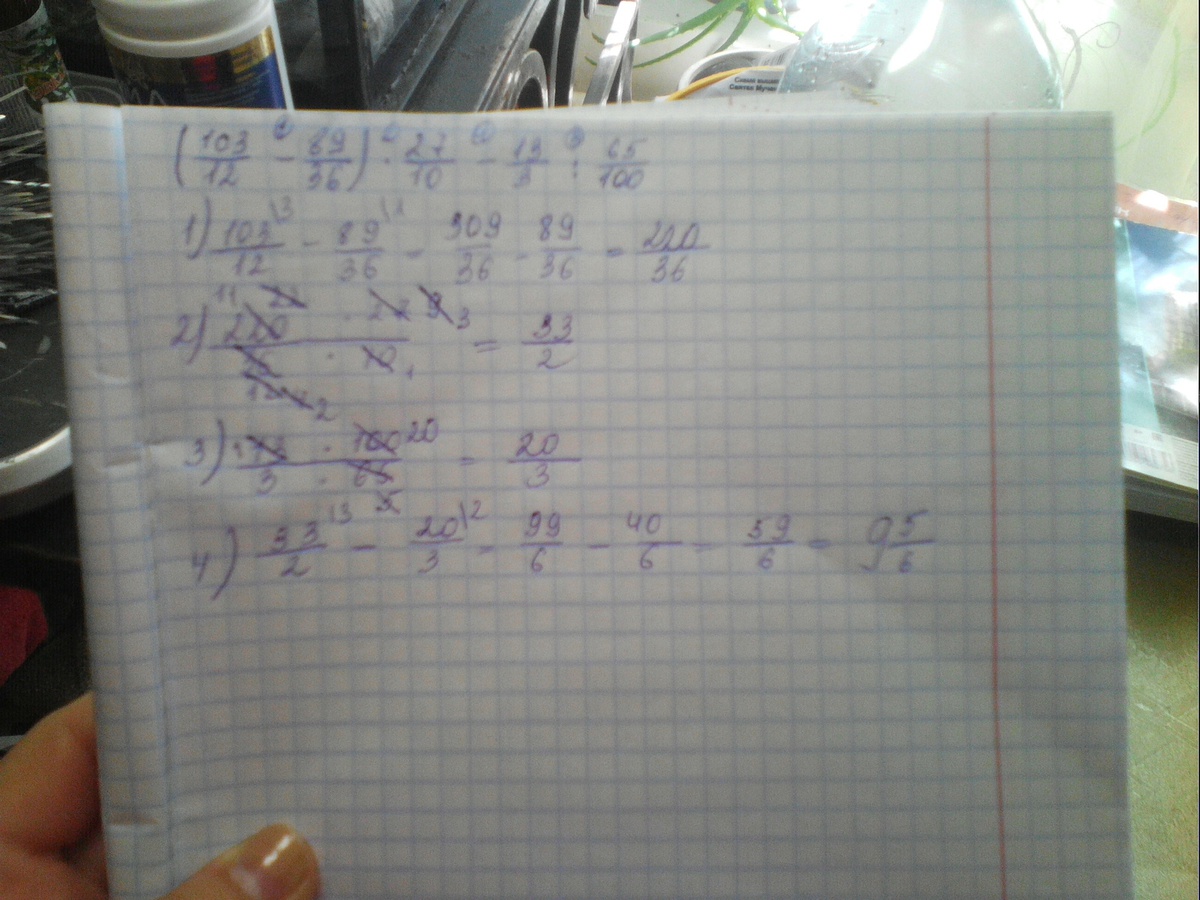 Самая выше
Святах Муче
(103/12 - 89/36) · 27/10 - 13/3 : 65/100
1) 103/12 \3 - 89/36 \1 = 309/36 - 89/36 = 220/36
2) 220 · 27 / 36 · 10 = 33/2
3) 13 · 100 20 / 3 · 65 5 = 20/3
4) 33/2 \3 - 20/3 \2 = 99/6 - 40/6 = 59/6 = 9 5/6